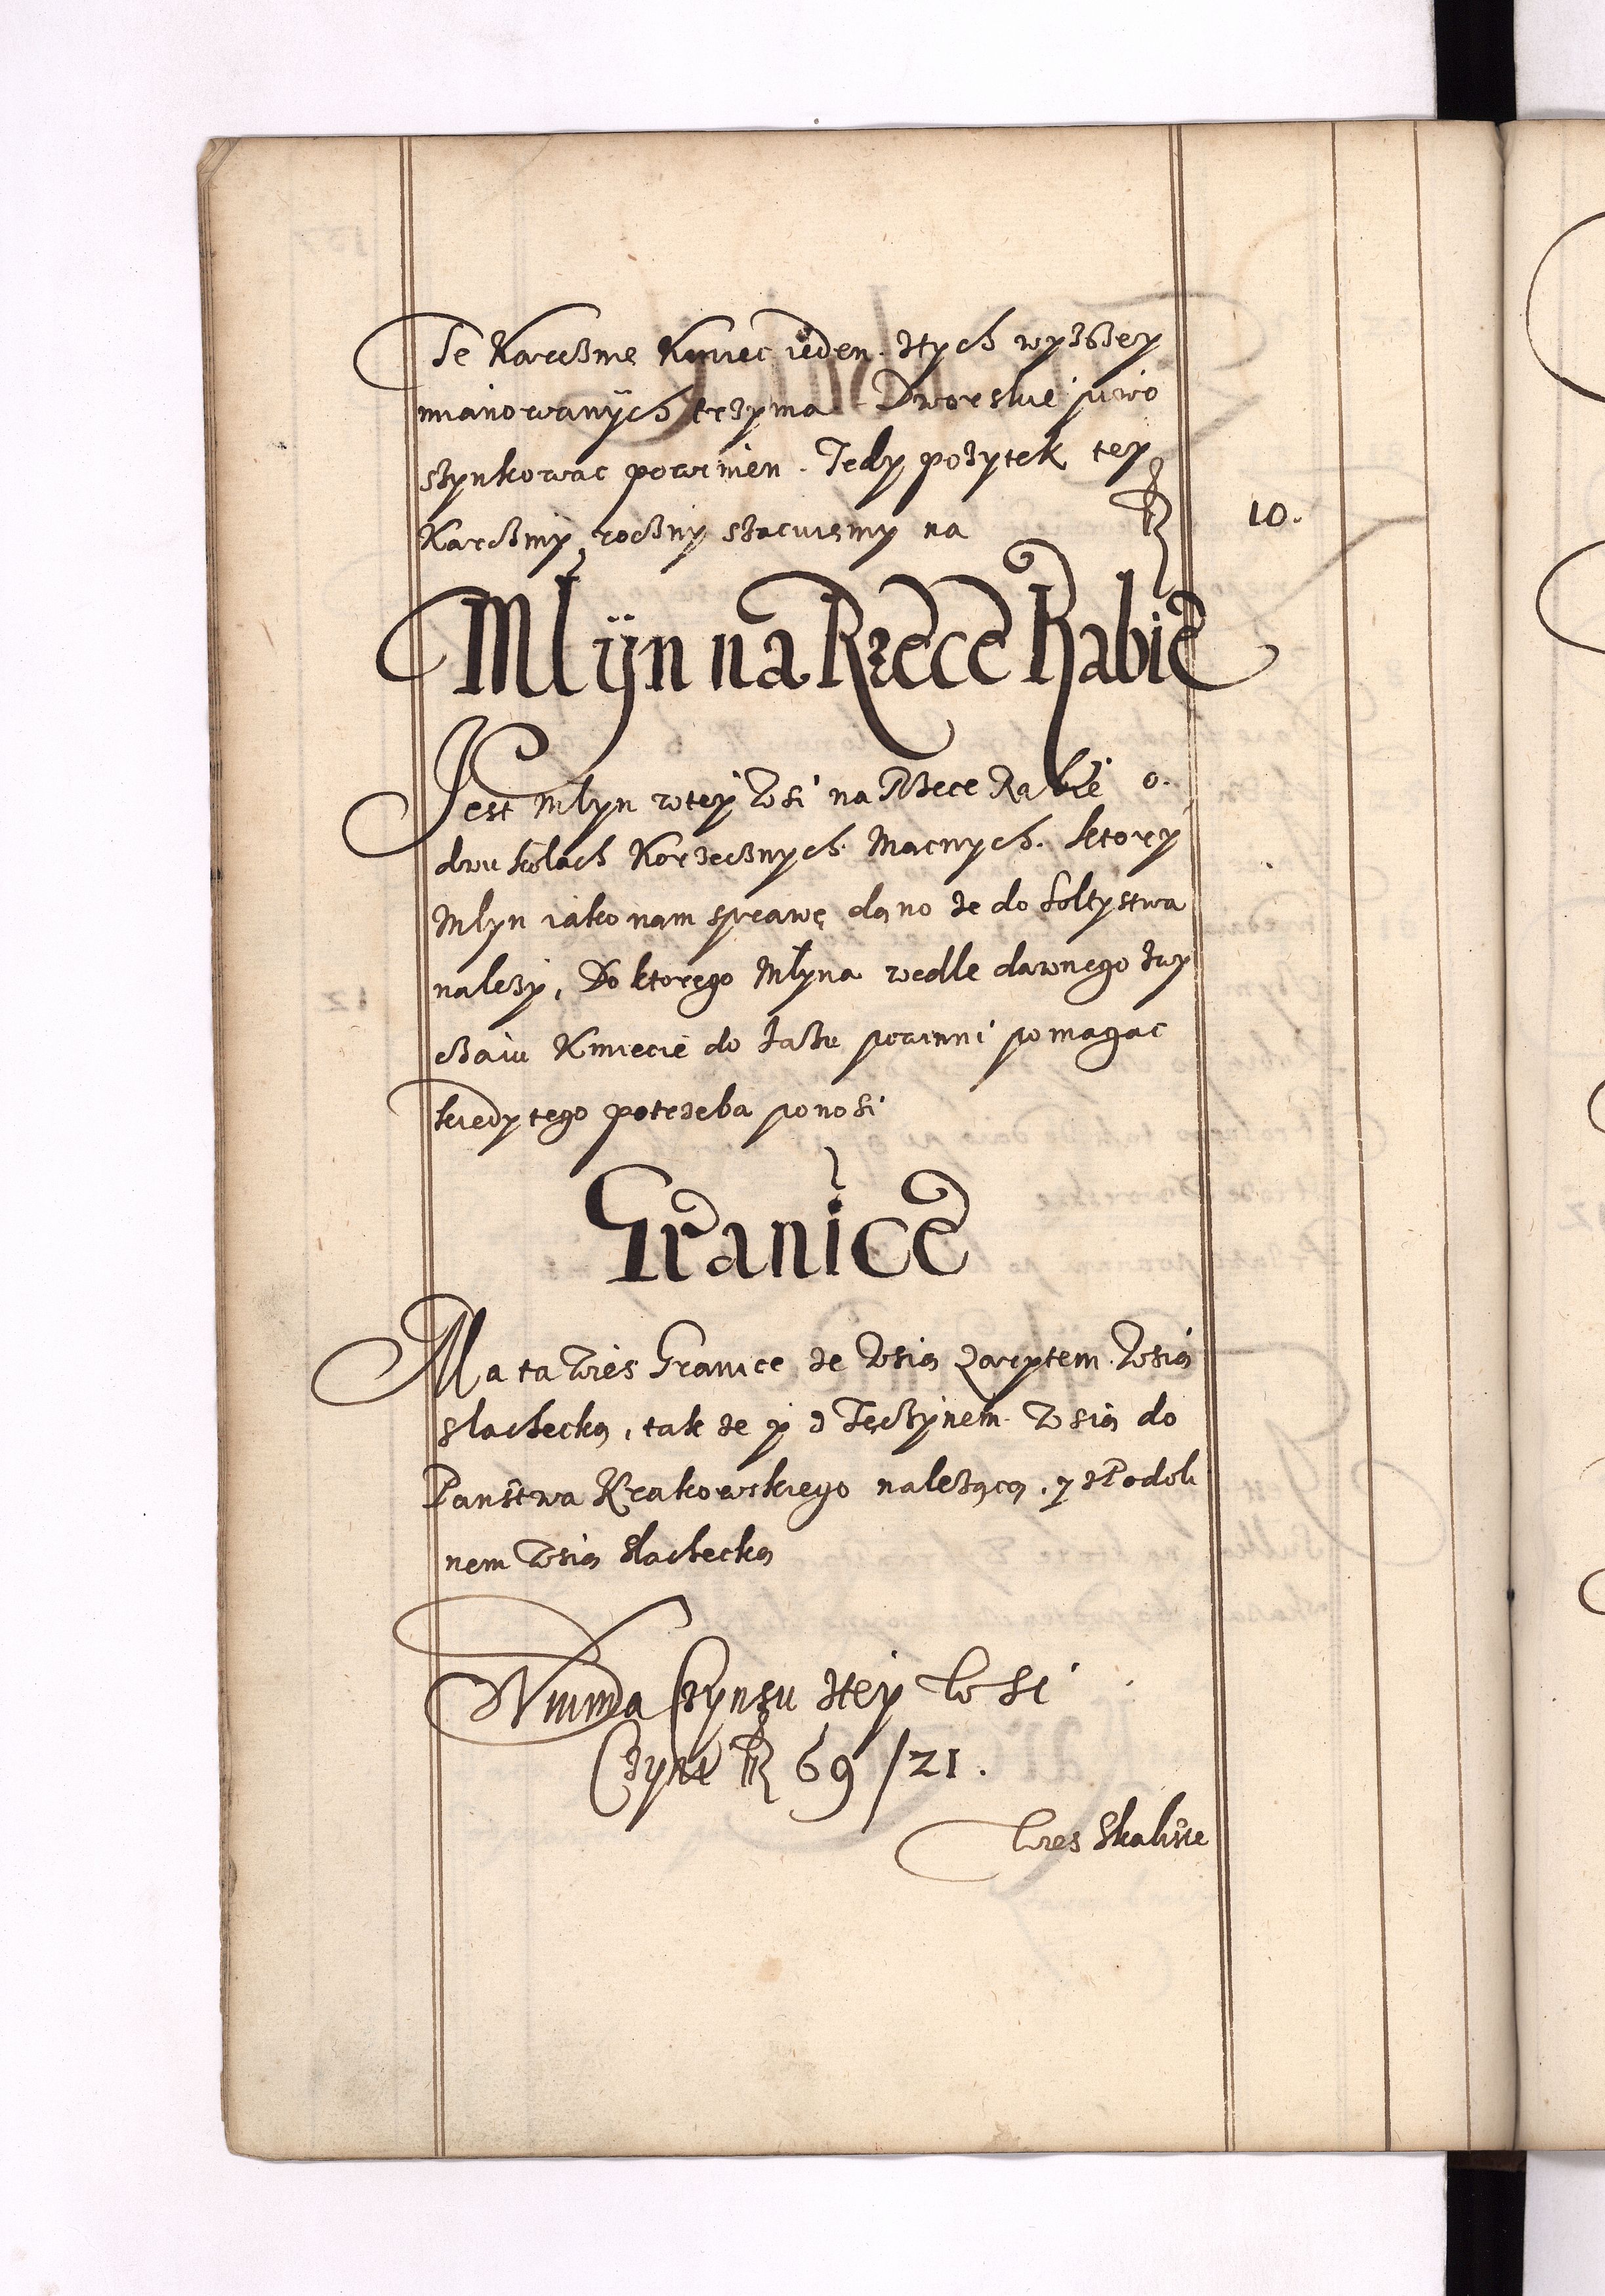 Te Karczme Kmiec ieden ztych wyzszey
mianowanÿch trzyma Dworskie piwo
szynkowac powinien. Tedy pozytek tey
Karczmÿ roczny szacuiemy na fl 10.
Mlÿn na Rzece Rabie
Jest Młyn wteÿ Wsi na Rzece Rabie o.
dwu kołach Korzecznych Macnych. ktorÿ
Młyn iako nam sprawę dano ze do Soltystwa
nalezÿ, Do ktorego Młyna wedle dawnego zwy
czaiu Kmiecie do Jazu powinni pomagac
kiedy tego potrzeba ponosi
Granice
Ma ta Wies Granice ze Wsią Wsią
slachecką, tak ze ÿ z Tęczÿnem Wsią do
Panstwa Krakowskiego nalezącą. y zPodoli
nem Wsią slachecką
Summa Czynszu zteÿ Wsi
Czyni fl 69/21.
Wies Skalsie